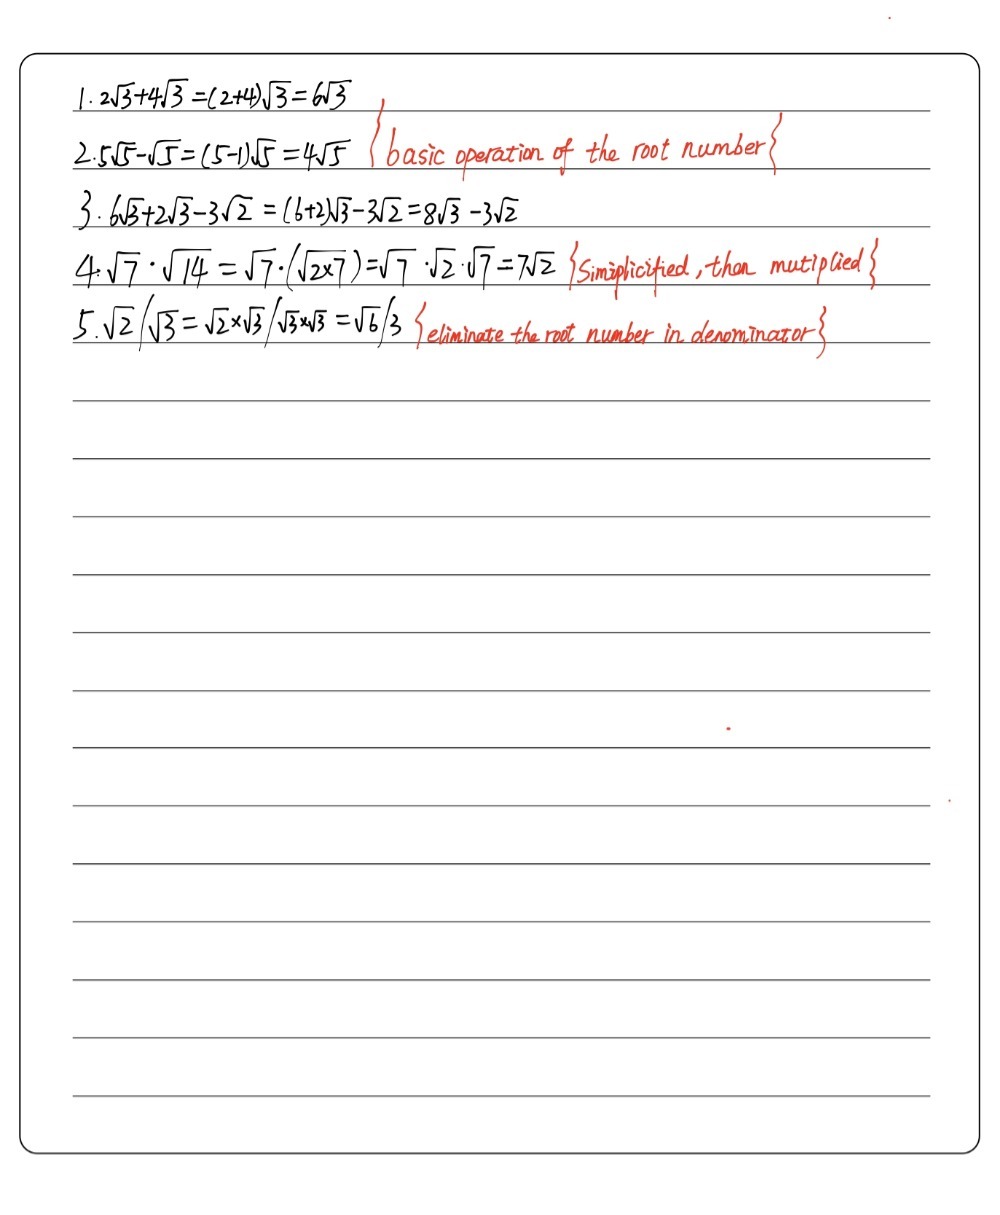 1. 2√3+4√3 =(2+4)√3 = 6√3
2. 5√5-√5 = (5-1)√5 = 4√5 {basic operation of the root number}
3. 6√3+2√3-3√2 = (6+2)√3-3√2 = 8√3 -3√2
4. √7 · √14 = √7 · (√2×7) = √7 · √2 · √7 = 7√2 {Simiplicified, then mutiplied}
5. √2/√3 = √2×√3/√3×√3 = √6/3 {eliminate the root number in denominator}